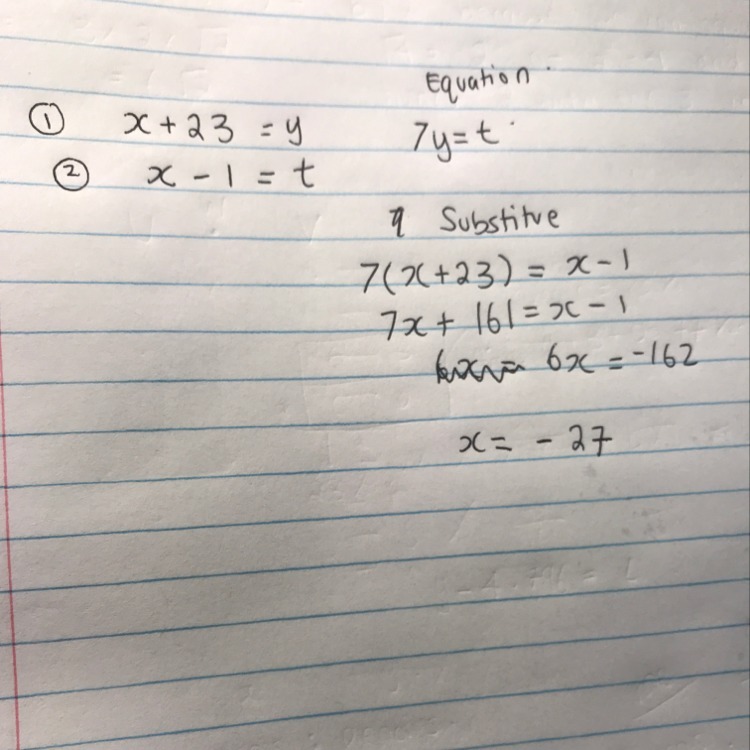 ① x + 23 = y
② x - 1 = t
Equation
7y = t
Substitve
7(x+23) = x - 1
7x + 161 = x - 1
6x = -162
x = - 27